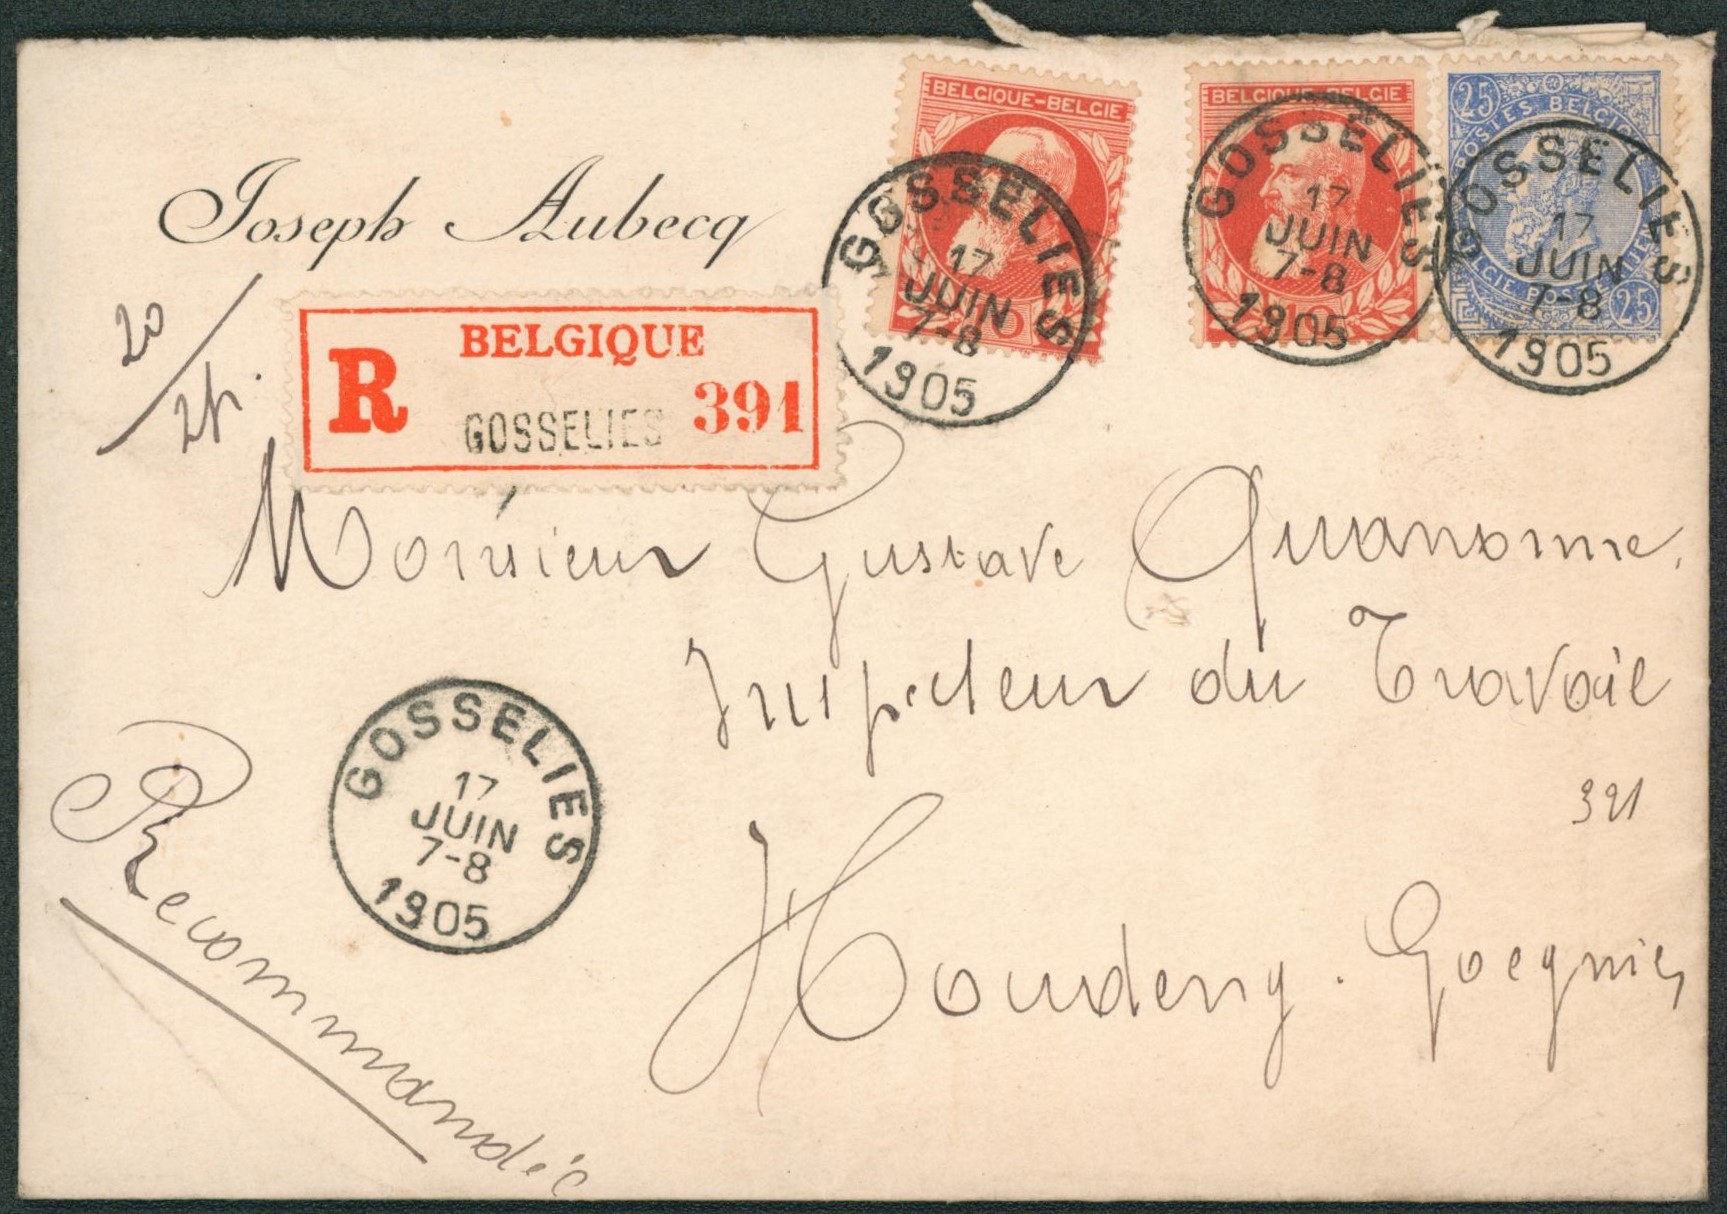 Joseph Aubecq
20
24.
BELGIQUE
R
GOSSELIES
391
BELGIQUE-BELGIE
GOSSELIES
17
JUIN
7-8
1905
BELGIQUE-BELGIE
GOSSELIES
17
JUIN
7-8
1905
25
POSTES BELGIQUE
25
GOSSELIES
17
JUIN
7-8
1905
Monsieur Gustave Quanonne,
Inspecteur du Travail
391
Houdeng-Goegnies
GOSSELIES
17
JUIN
7-8
1905
Recommandée